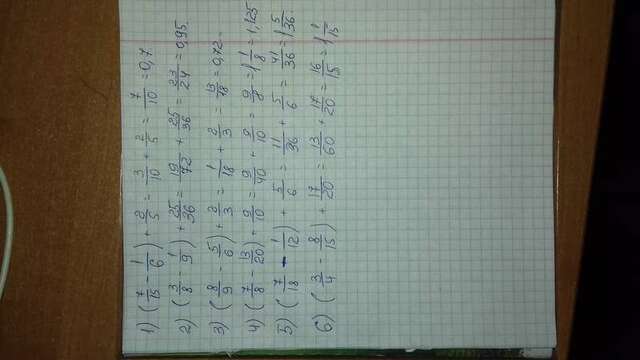 1) (7/15 - 1/6) + 2/5 = 3/10 + 2/5 = 7/10 = 0,7.
2) (3/8 - 1/9) + 25/36 = 19/72 + 25/36 = 23/24 = 0,95.
3) (8/9 - 5/6) + 2/3 = 1/18 + 2/3 = 13/18 = 0,72.
4) (7/8 - 13/20) + 9/10 = 9/40 + 9/10 = 9/8 = 1 1/8 = 1,125
5) (7/18 - 1/12) + 5/6 = 11/36 + 5/6 = 41/36 = 1 5/36.
6) (3/4 - 8/15) + 17/20 = 13/60 + 17/20 = 16/15 = 1 1/15